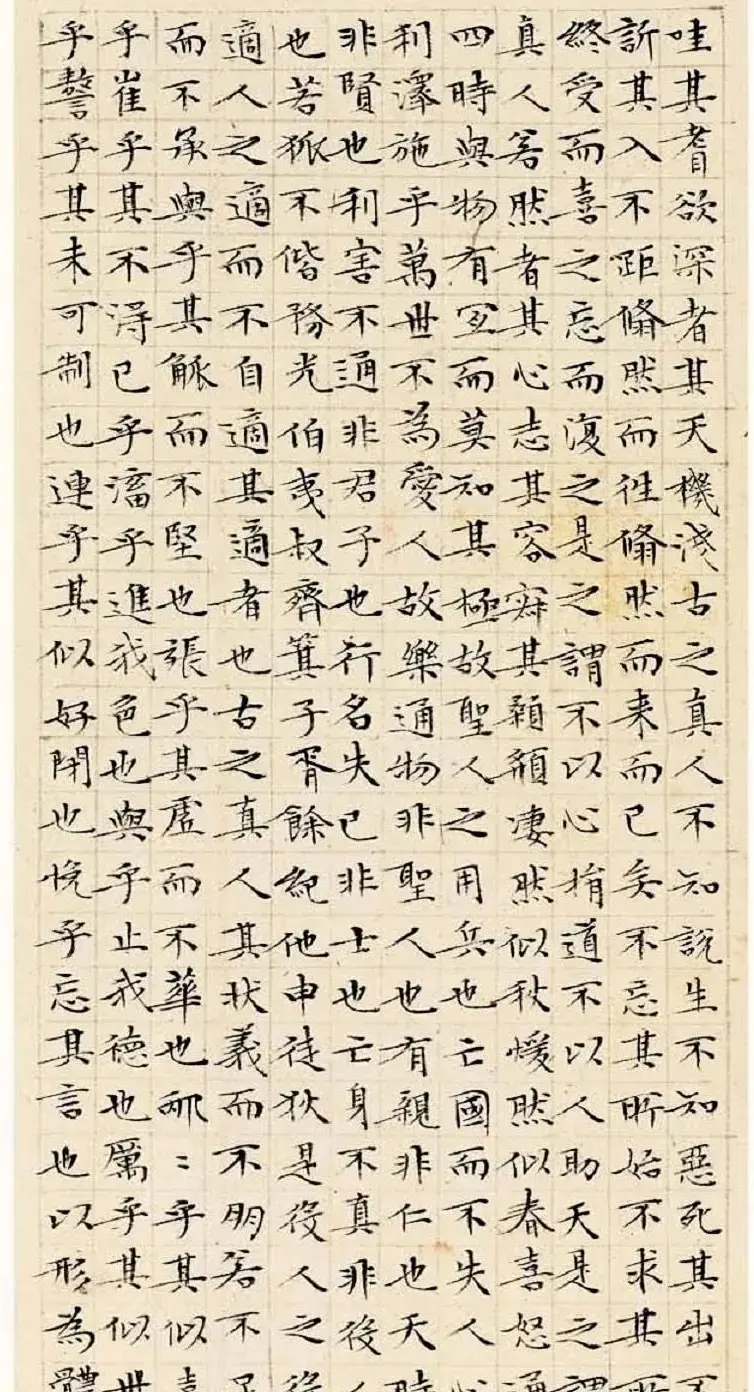 哇其耆欲深者其天機淺古之真人不知說生不知惡死其出不
訢其入不距翛然而往翛然而来而已矣不忘其所始不求其所
終受而喜之忘而復之是之謂不以心捐道不以人助天是之謂
真人若然者其心志其容寂其顙頯凄然似秋煖然似春喜怒通
四時與物有宜而莫知其極故聖人之用兵也亡國而不失人心
利澤施乎萬世不為愛人故樂通物非聖人也有親非仁也天時
非賢也利害不通非君子也行名失已非士也亡身不真非役人
也若狐不偕務光伯夷叔齊箕子胥餘紀他申徒狄是役人之役
適人之適而不自適其適者也古之真人其狀義而不朋若不足
而不承與乎其觚而不堅也張乎其虛而不華也邴〻乎其似喜
乎崔乎其不得已乎滀乎進我色也與乎止我德也厲乎其似世
乎謷乎其未可制也連乎其似好閉也悗乎忘其言也以形為體